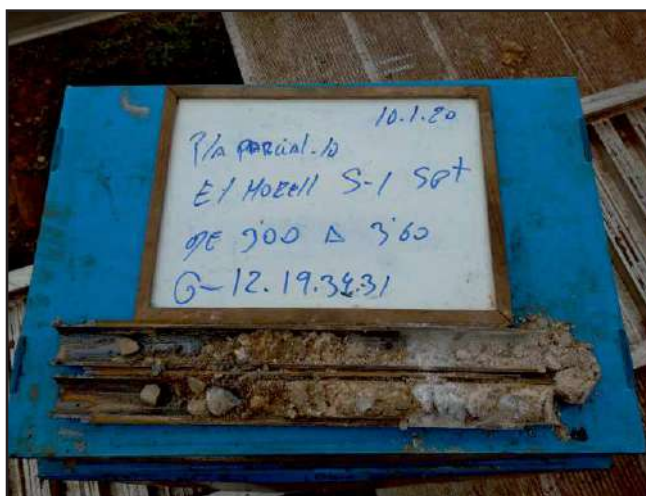 10.1.20
Pla PARCIAL-10
El MORELL S-1 SPt
DE 3'00 A 3'60
G-12.19.34.31